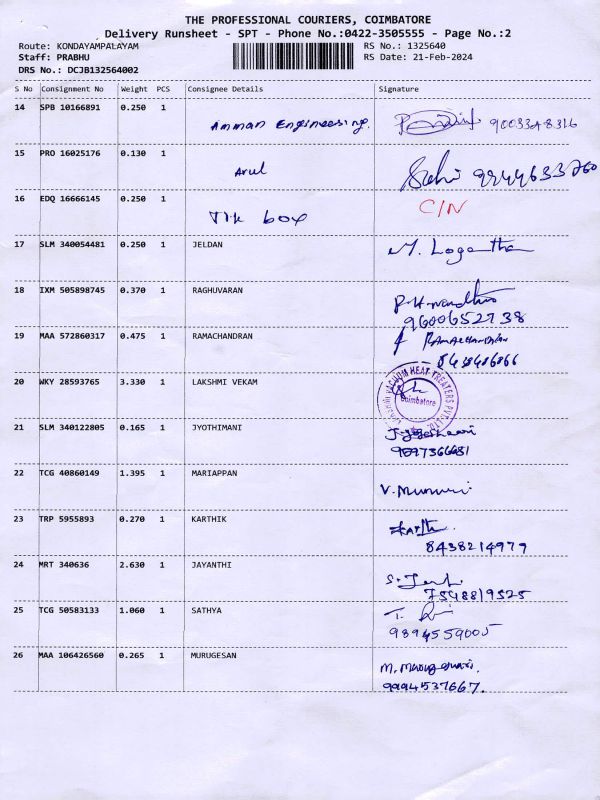 THE PROFESSIONAL COURIERS, COIMBATORE
Delivery Runsheet - SPT - Phone No.:0422-3505555 - Page No.:2
Route: KONDAYAMPALAYAM RS No.: 1325640
Staff: PRABHU RS Date: 21-Feb-2024
DRS No.: DCJB132564002
S No Consignment No Weight PCS Consignee Details Signature
14 SPB 10166891 0.250 1 Amman Engineering.
15 PRO 16025176 0.130 1 Arul
16 EDQ 16666145 0.250 1 box C/N
17 SLM 340054481 0.250 1 JELDAN M. Logantha
18 IXM 505898745 0.370 1 RAGHUVARAN
9600652738
19 MAA 572860317 0.475 1 RAMACHANDRAN RAMACHANDRAN
8438486866
20 WKY 28593765 3.330 1 LAKSHMI VEKAM VACUUM HEAT TREATERS PVT.LTD. Coimbatore
21 SLM 340122805 0.165 1 JYOTHIMANI
22 TCG 40860149 1.395 1 MARIAPPAN
23 TRP 5955893 0.270 1 KARTHIK Karthi
8438214979
24 MRT 340636 2.630 1 JAYANTHI
7548819525
25 TCG 50583133 1.060 1 SATHYA
9894559005
26 MAA 106426560 0.265 1 MURUGESAN
9994537667.